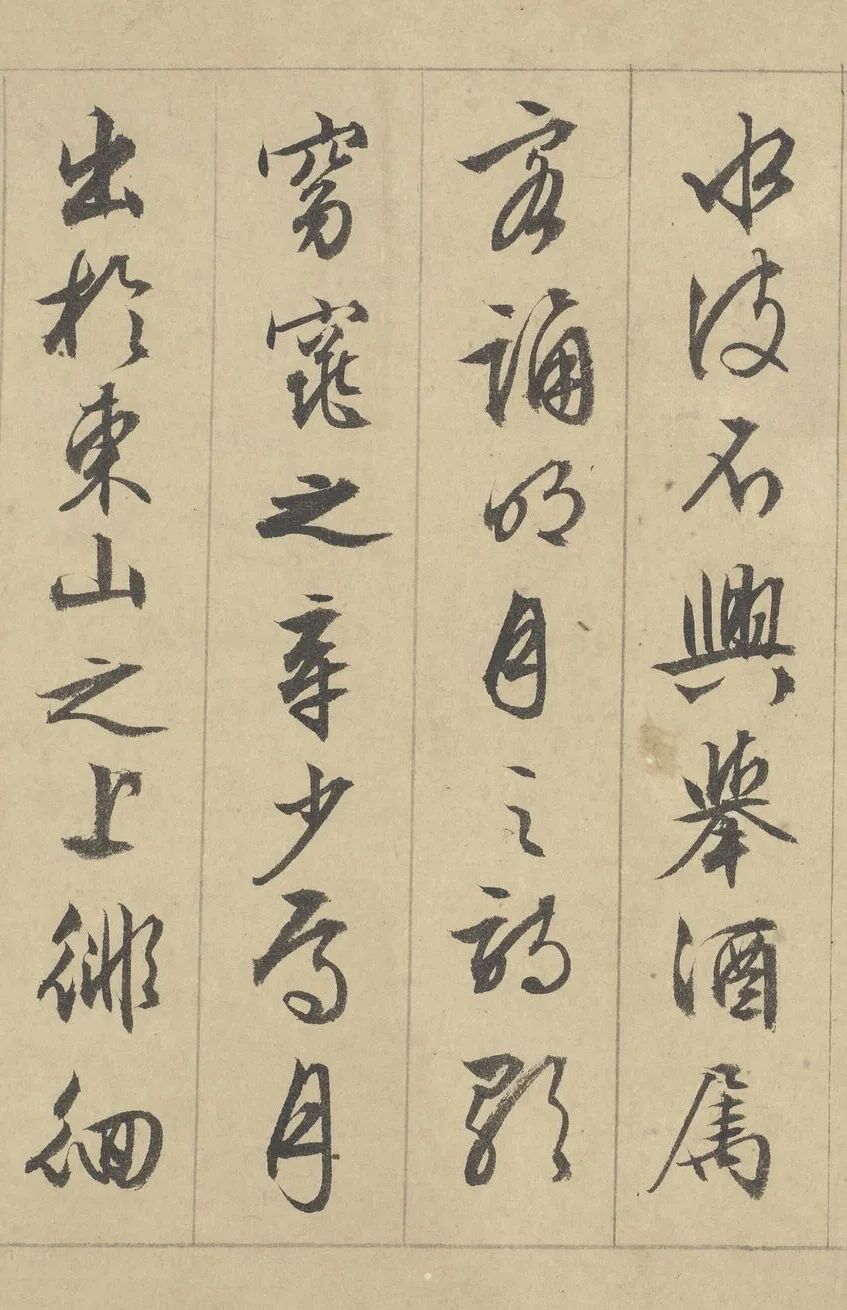 水波不興舉酒屬
客誦明月之詩歌
窈窕之章少焉月
出於東山之上徘徊